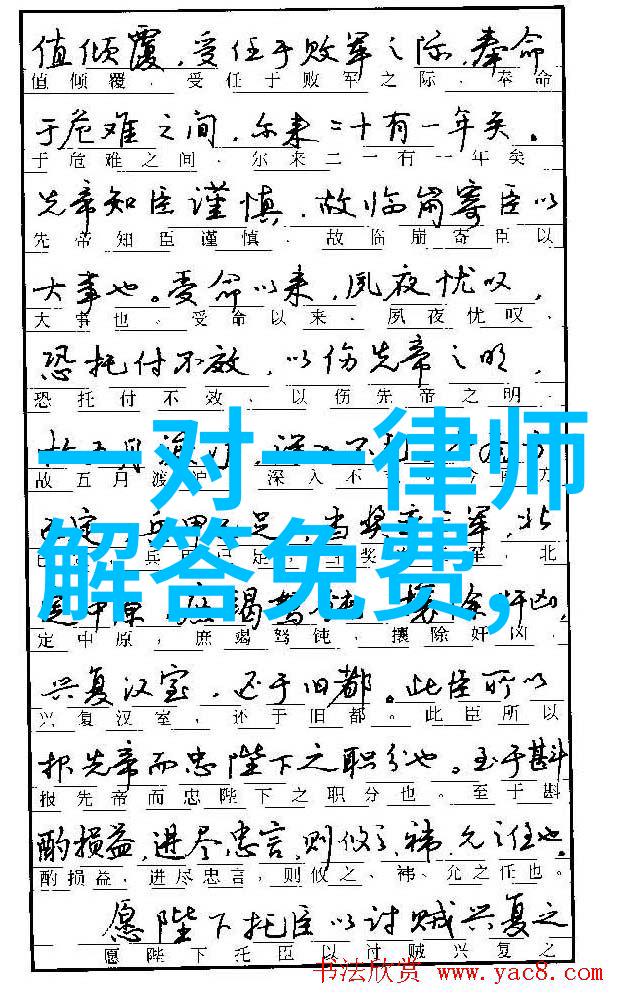 值倾覆，受任于败军之际，奉命
值倾覆，受任于败军之际，奉命
于危难之间，尔来二十有一年矣。
于危难之间，尔来二一有一年矣
先帝知臣谨慎，故临崩寄臣以
先帝知臣谨慎，故临崩寄臣以
大事也。受命以来，夙夜忧叹，
大事也。受命以来，夙夜忧叹，
恐托付不效，以伤先帝之明，
恐托付不效，以伤先帝之明，
故五月渡泸，深入不
故五月渡泸，深入不
一对一律师
定，兵甲足，当奖三军，北
足，奖军，北
解答免费，
定中原，庶竭驽钝，攘除奸凶，
定中原，庶竭驽钝，攘除奸凶，
兴复汉室，还于旧都。此臣所以
兴复汉室，还于旧都。此臣所以
报先帝而忠陛下之职分也。至于斟
报先帝而忠陛下之职分也。至于斟
酌损益，进尽忠言，则攸之、祎、允之任也。
酌损益，进尽忠言，则攸之、祎、允之任也。
愿陛下托臣以讨贼兴复之
愿陛下托臣以讨贼兴复之
书法欣赏 www.yac8.com